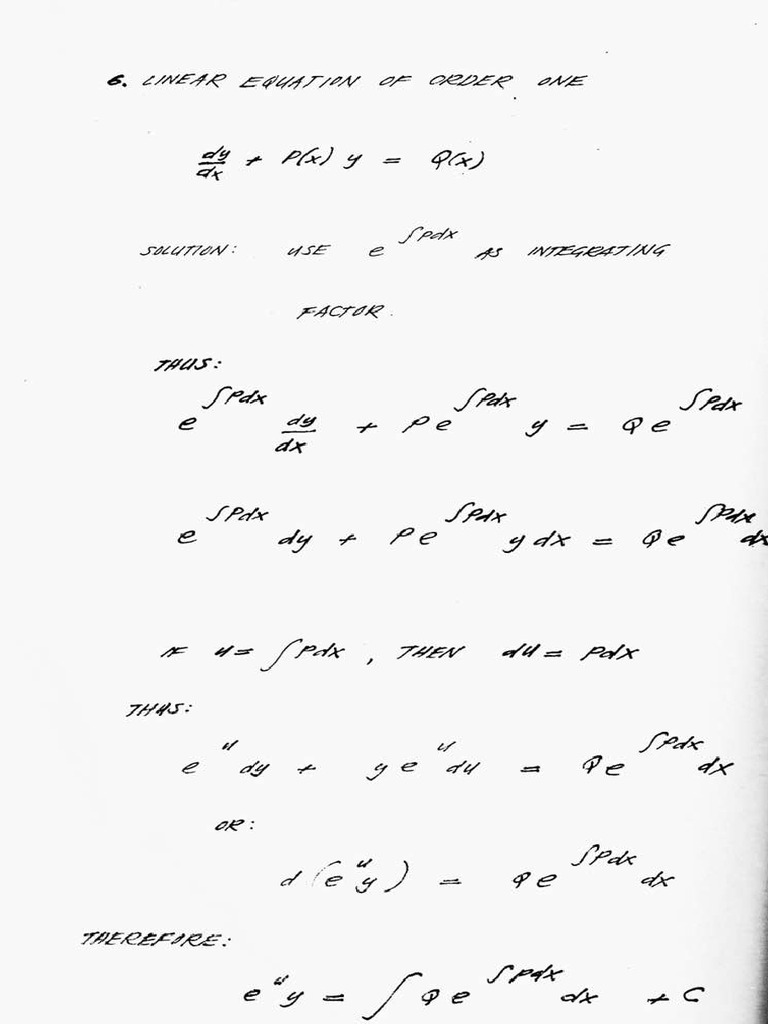 6. LINEAR EQUATION OF ORDER ONE
dy/dx + P(x) y = Q(x)
SOLUTION: USE e^∫Pdx AS INTEGRATING
FACTOR.
THUS:
e^∫Pdx dy/dx + Pe^∫Pdx y = Qe^∫Pdx
e^∫Pdx dy + Pe^∫Pdx y dx = Qe^∫Pdx dx
IF u = ∫Pdx , THEN du = Pdx
THUS:
e^u dy + y e^u du = Qe^∫Pdx dx
OR:
d(e^u y) = Qe^∫Pdx dx
THEREFORE:
e^u y = ∫Qe^∫Pdx dx + C